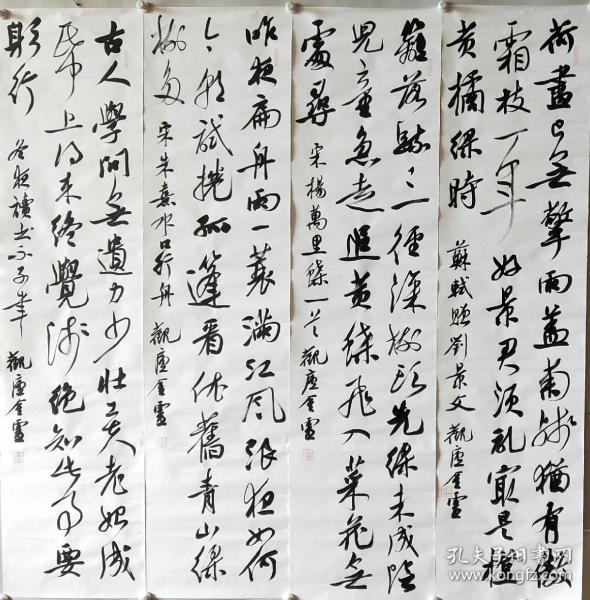 荷盡已無擎雨蓋菊殘猶有傲
霜枝一年好景君須記最是橙
黄橘綠時
蘇軾贈劉景文
籬落疏疏一徑深樹頭先綠未成陰
兒童急走追黄蝶飛入菜花無
處尋
宋楊萬里
昨夜扁舟雨一蓑滿江風浪夜如何
今朝試捲孤篷看依舊青山綠
樹多
宋朱熹水口行舟
古人學問無遺力少壯工夫老始成
紙上得來終覺淺絶知此事要
躬行
冬夜讀書示子聿
孔夫子旧书网
www.kongfz.com